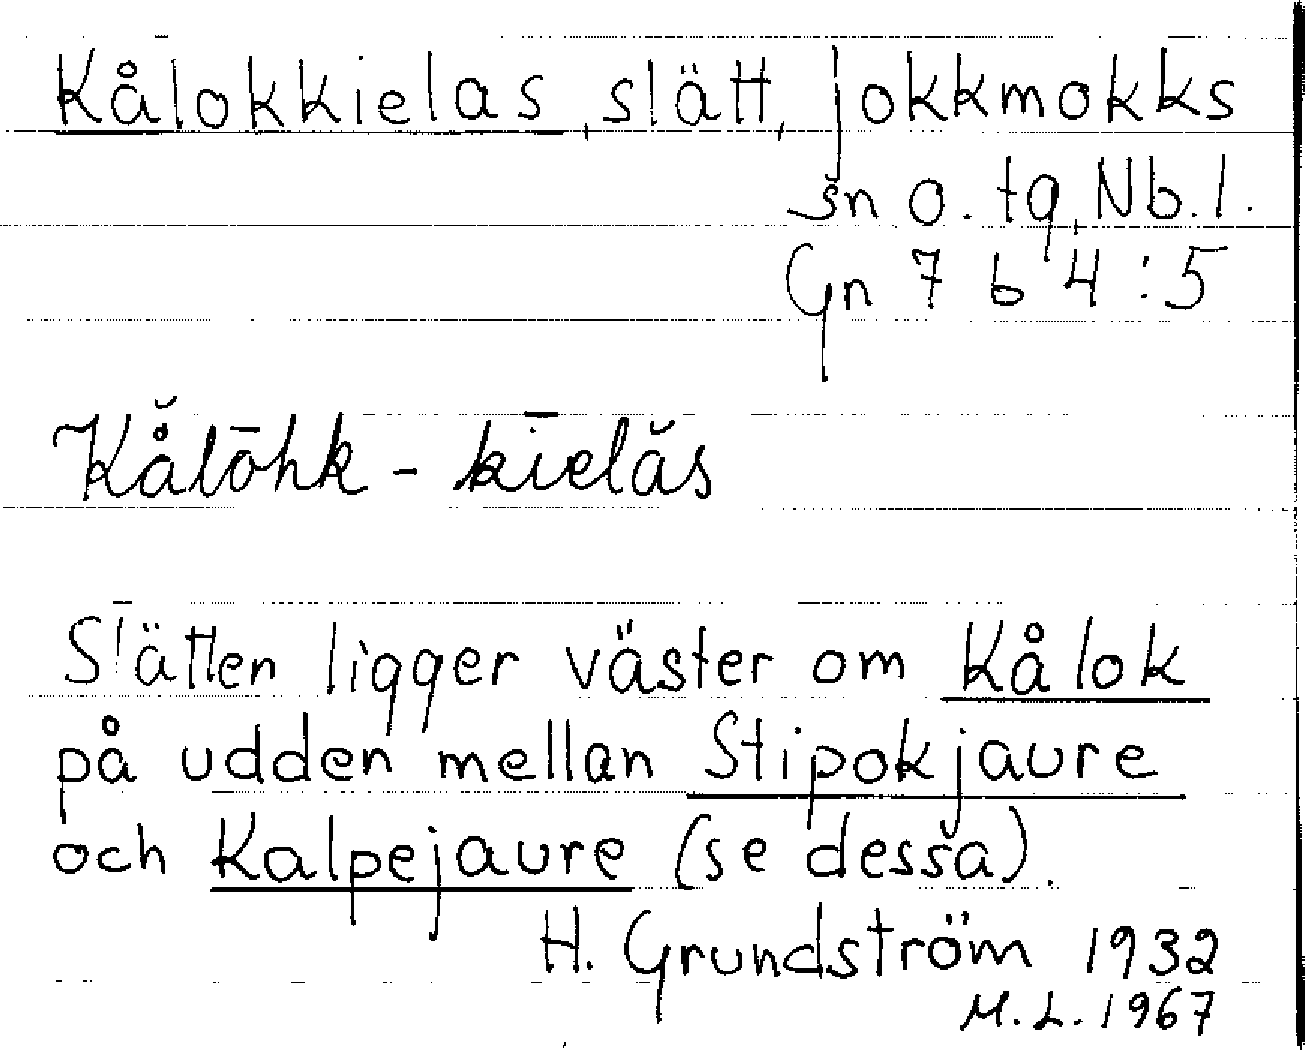 Kålokkielas, slätt, Jokkmokks
sn o. tg, Nb. l.
Gn 7 b 4:5
Kå̆lōhk - kīelăs
Slätten ligger väster om Kålok
på udden mellan Stipokjaure
och Kalpejaure (se dessa).
H. Grundström 1932
M. L. 1967